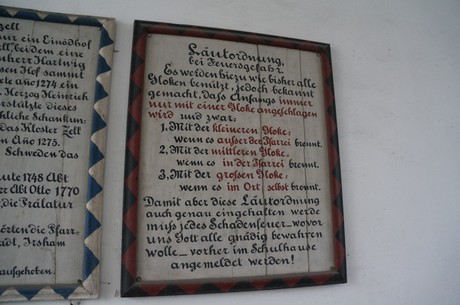 zell
nur ein Einödhof
ll, bei dem eine
nherr Hartwig
sen Hof samt
ete 1274 ein
Herzog Heinrich
rstützte dieses
hliche Schankun:
das Kloster Zell
im Año 1275.
Schweden das
ute 1748 Abt
er Abt Otto 1770
die Prälatur
örten die Pfar-
adt, Irsham
aufgehoben.
Läutordnung,
bei Feuersgefahr.
Es werden hiezu wie bisher alle
Gloken benützt, jedoch bekannt
gemacht, daß Anfangs immer
nur mit einer Gloke angeschlagen
wird und zwar;
1. Mit der kleineren Gloke;
wenn es außer der Pfarrei brennt.
2. Mit der mittleren Gloke,
wenn es in der Pfarrei brennt.
3. Mit der großen Gloke;
wenn es im Ort selbst brennt.
Damit aber diese Läutordnung
auch genau eingehalten werde
muß jedes Schadenfeuer_wovor
uns Gott alle gnädig bewahren
wolle_vorher im Schulhause
angemeldet werden!